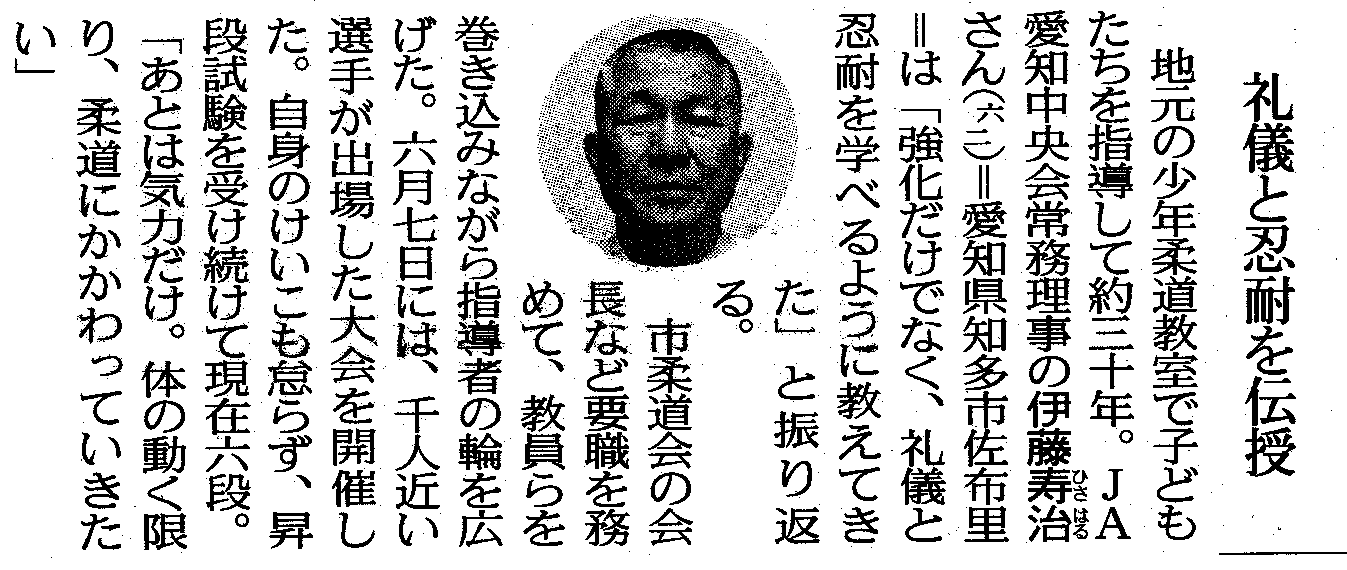 礼儀と忍耐を伝授
地元の少年柔道教室で子ども
たちを指導して約三十年。ＪＡ
愛知中央会常務理事の伊藤寿治
ひさはる
さん（六二）＝愛知県知多市佐布里
＝は「強化だけでなく、礼儀と
忍耐を学べるように教えてき
た」と振り返
る。
市柔道会の会
長など要職を務
めて、教員らを
巻き込みながら指導者の輪を広
げた。六月七日には、千人近い
選手が出場した大会を開催し
た。自身のけいこも怠らず、昇
段試験を受け続けて現在六段。
「あとは気力だけ。体の動く限
り、柔道にかかわっていきた
い」